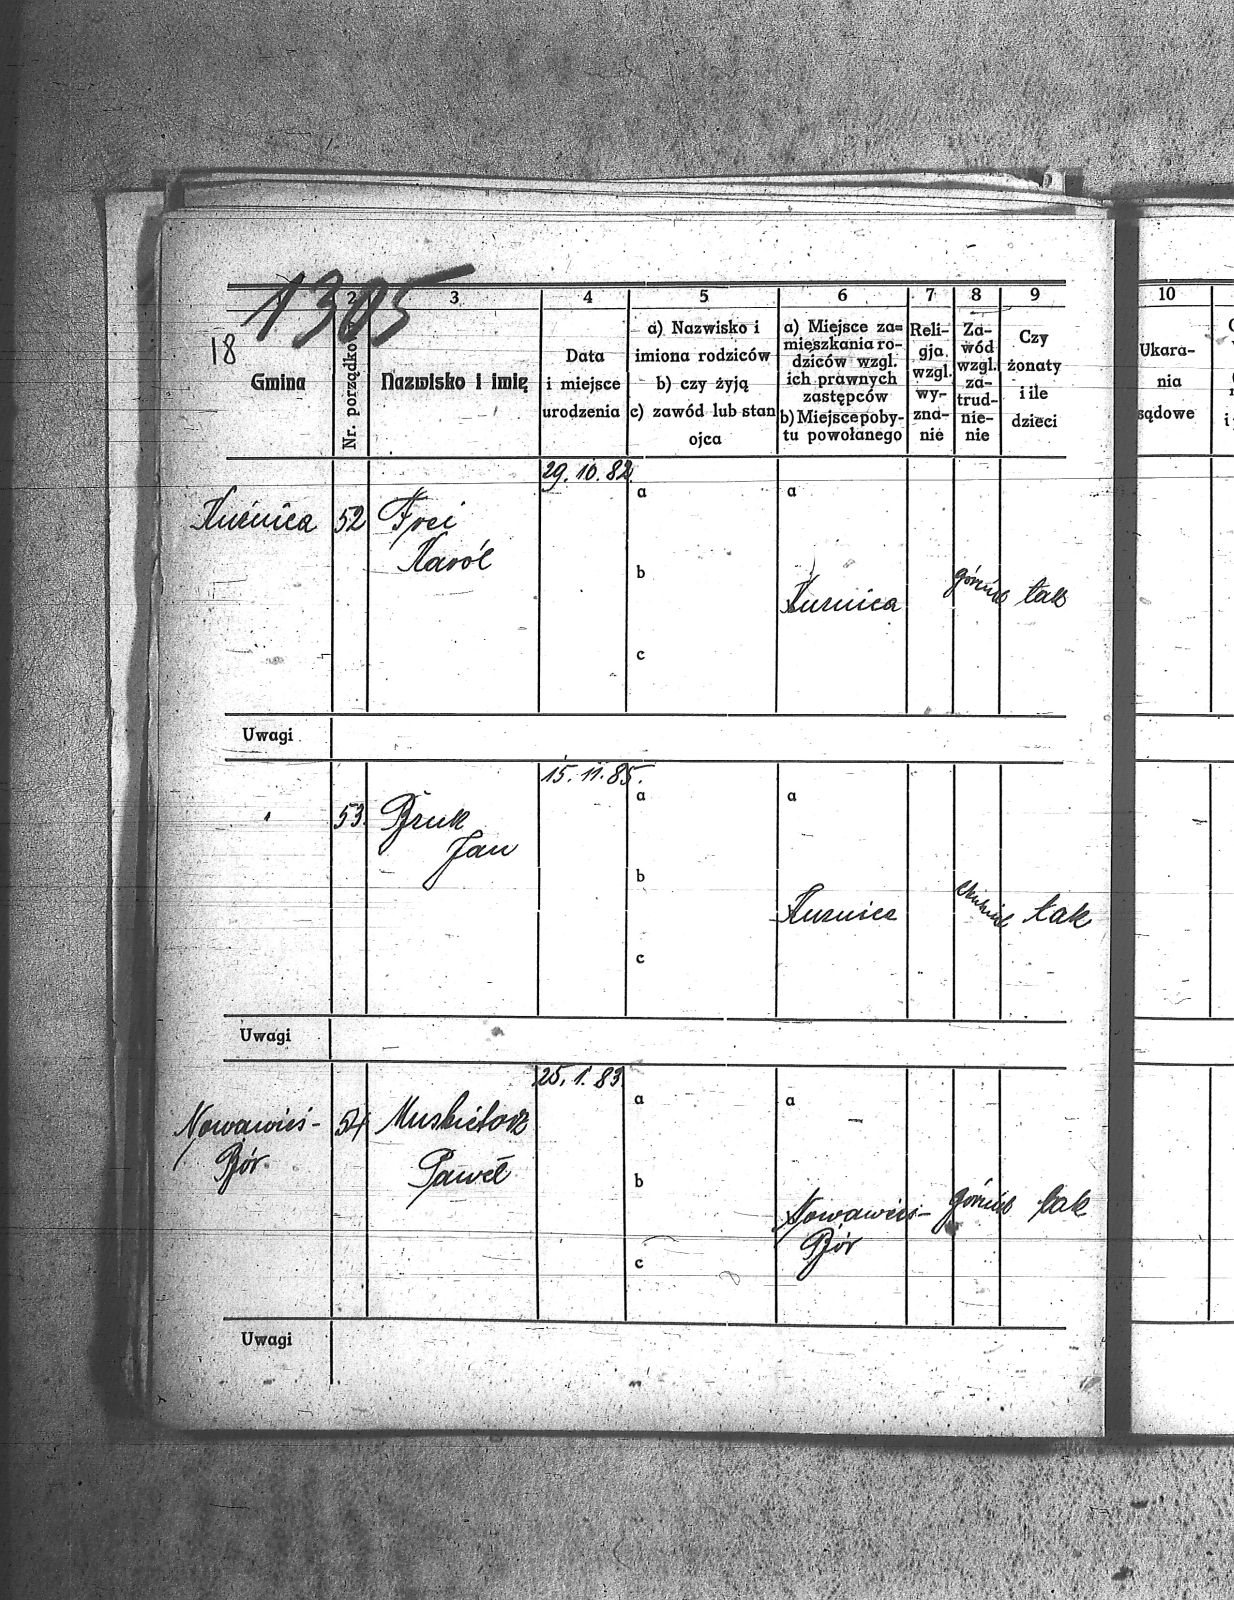 1305
18
Gmina
2
Nr. porządko
3
Nazwisko i imię
4
Data
i miejsce
urodzenia
5
a) Nazwisko i
imiona rodziców
b) czy żyją
c) zawód lub stan
ojca
6
a) Miejsce za=
mieszkania ro-
dziców wzgl.
ich prawnych
zastępców
b) Miejsce poby-
tu powołanego
7
Reli-
gja
wzgl.
wy-
zna-
nie
8
Za-
wód
wzgl.
za-
trud-
nie-
nie
9
Czy
żonaty
i ile
dzieci
10
Ukara-
nia
sądowe
29. 10. 82.
Kuźnica 52 Frei
Karól
a a
b
Kuznica górnik tak
c
Uwagi
15. 11. 85.
53. Bruk
Jan
a a
b
Kuznica tak
c
Uwagi
25. 1. 83.
Nowawieś- 54 Muskietorz
Paweł
a a
b
Nowawieś- górnik tak
c
Uwagi